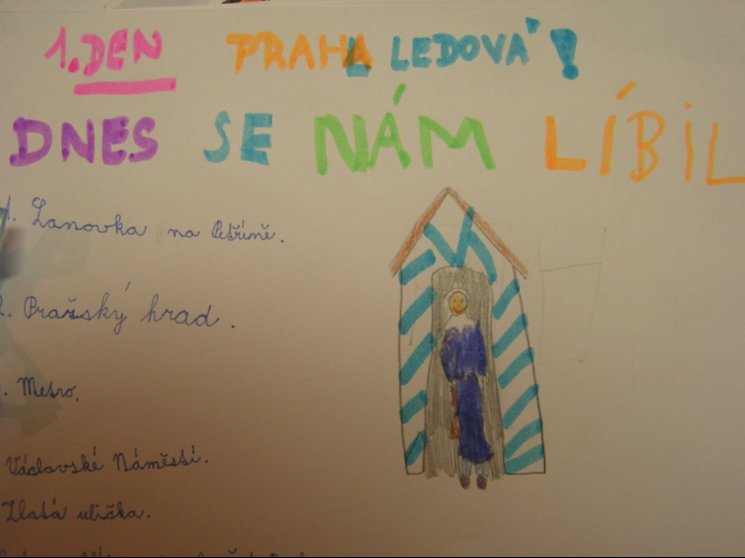 1. DEN PRAHA LEDOVÁ!
DNES SE NÁM LÍBIL
1. Lanovka na Petříně.
2. Pražský hrad.
Metro.
Václavské Náměstí.
Zlatá ulička.